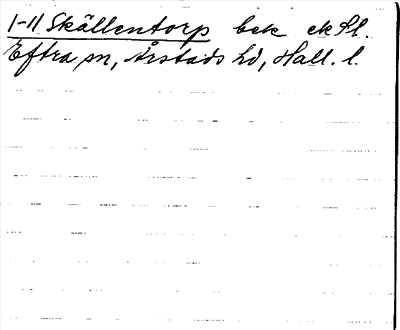 1-11 Skällentorp bek ek Sl.
Eftra sn, Årstads hd, Hall. l.